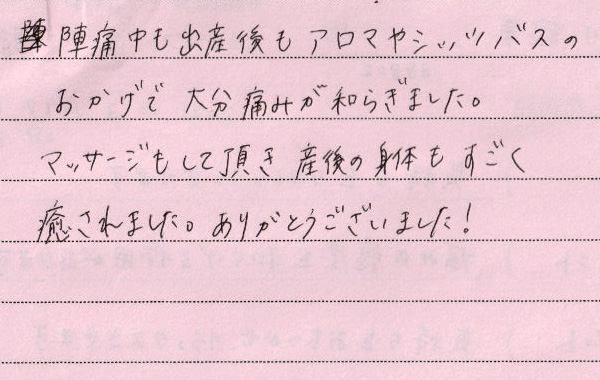 陣痛中も出産後もアロマやシッツバスの
おかげで 大分痛みが和らぎました。
マッサージもして頂き 産後の身体もすごく
癒されました。ありがとうございました!